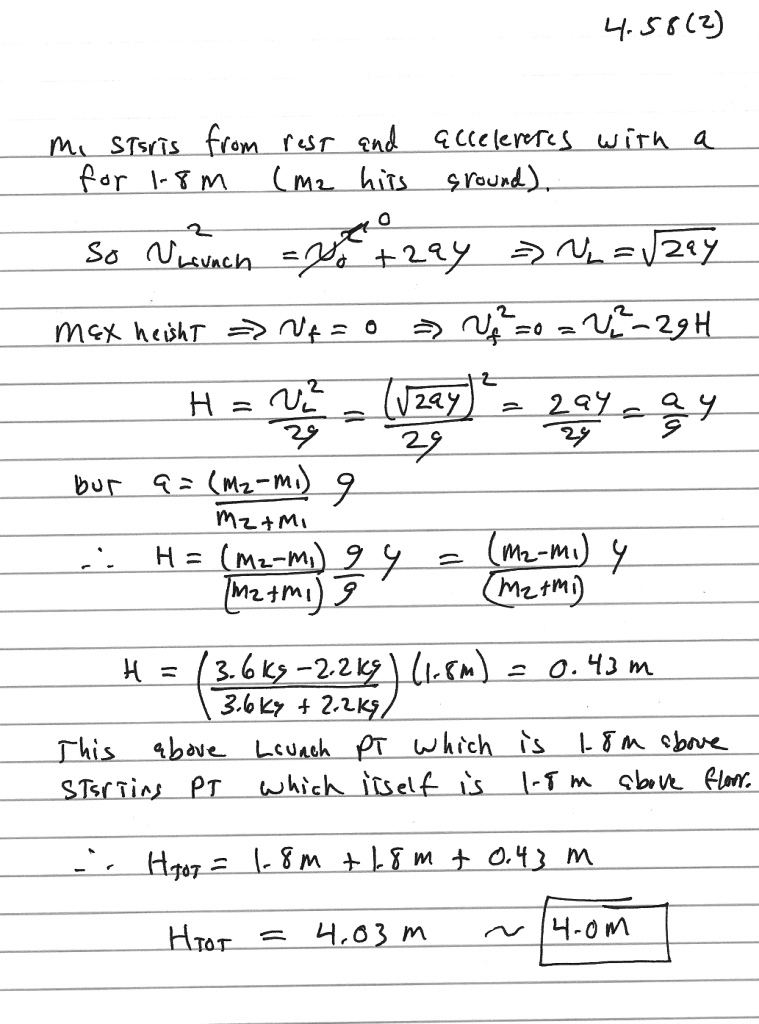 4.58(2)
m₁ starts from rest and accelerates with a
for 1.8 m (m₂ hits ground).
So v²Launch = v₀² → 0 + 2ay ⇒ v_L = √2ay
max height ⇒ v_f = 0 ⇒ v_f² = 0 = v_L² - 2gH
H = v_L²/2g = (√2ay)²/2g = 2ay/2g = a/g y
but a = (m₂-m₁)/(m₂+m₁) g
∴ H = (m₂-m₁)/(m₂+m₁) g/g y = (m₂-m₁)/(m₂+m₁) y
H = (3.6 kg - 2.2 kg / 3.6 kg + 2.2 kg) (1.8m) = 0.43 m
This above Launch PT which is 1.8 m above
starting PT which itself is 1.8 m above floor.
∴ H_TOT = 1.8 m + 1.8 m + 0.43 m
H_TOT = 4.03 m ~ 4.0 m